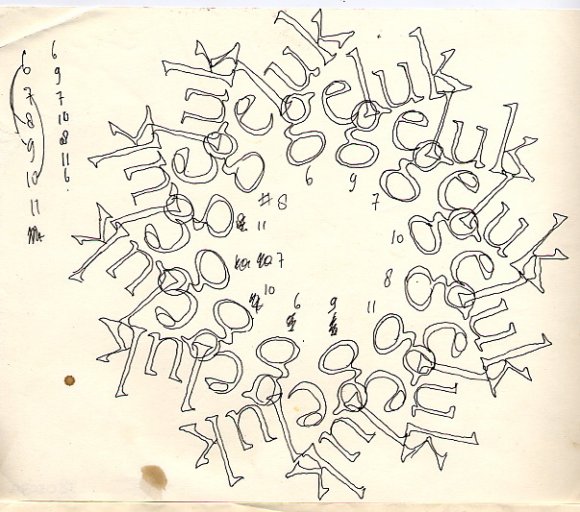 6
7
8
9
10
11
6
9
7
10
8
11
6
geluk
geluk
geluk
geluk
geluk
geluk
geluk
geluk
geluk
geluk
geluk
geluk
6
9
7
10
8
11
9
6
10
7
11
8